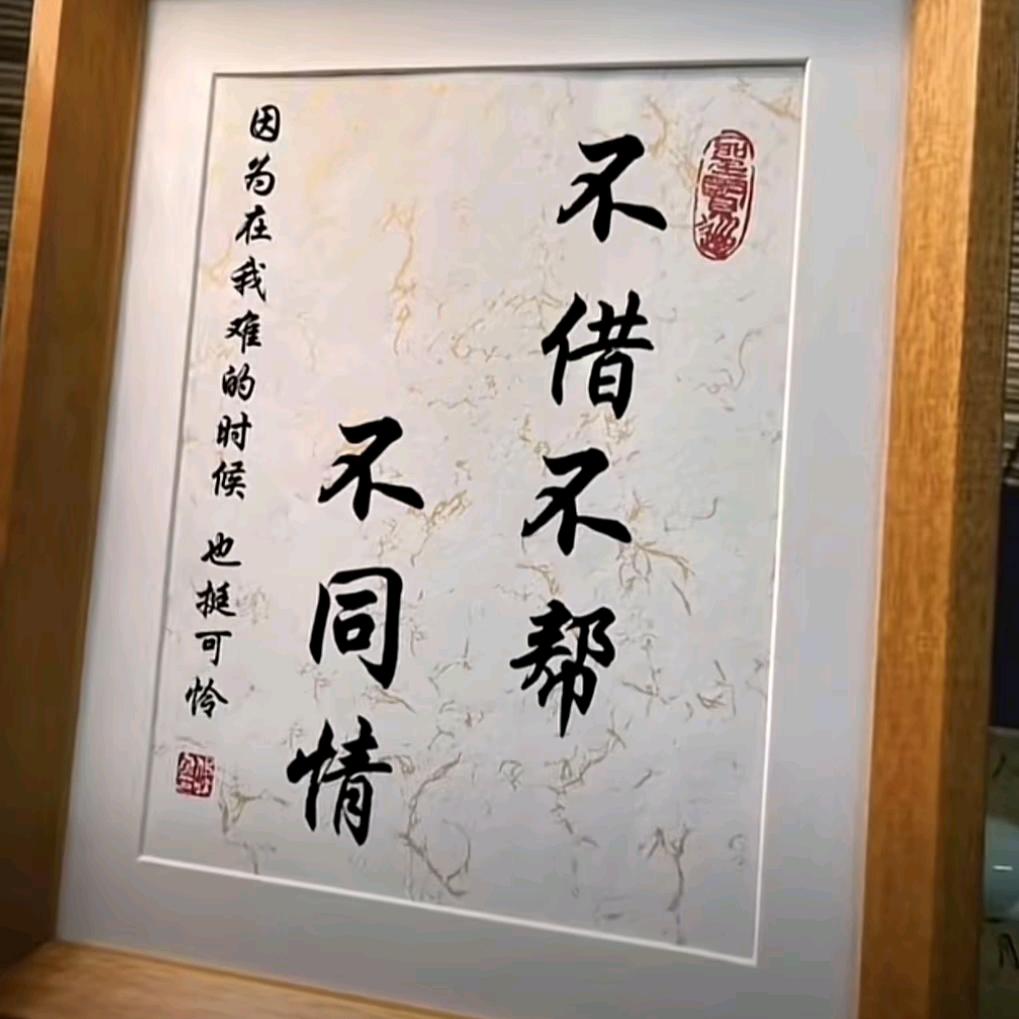 不借不帮
不同情
因为在我难的时候 也挺可怜